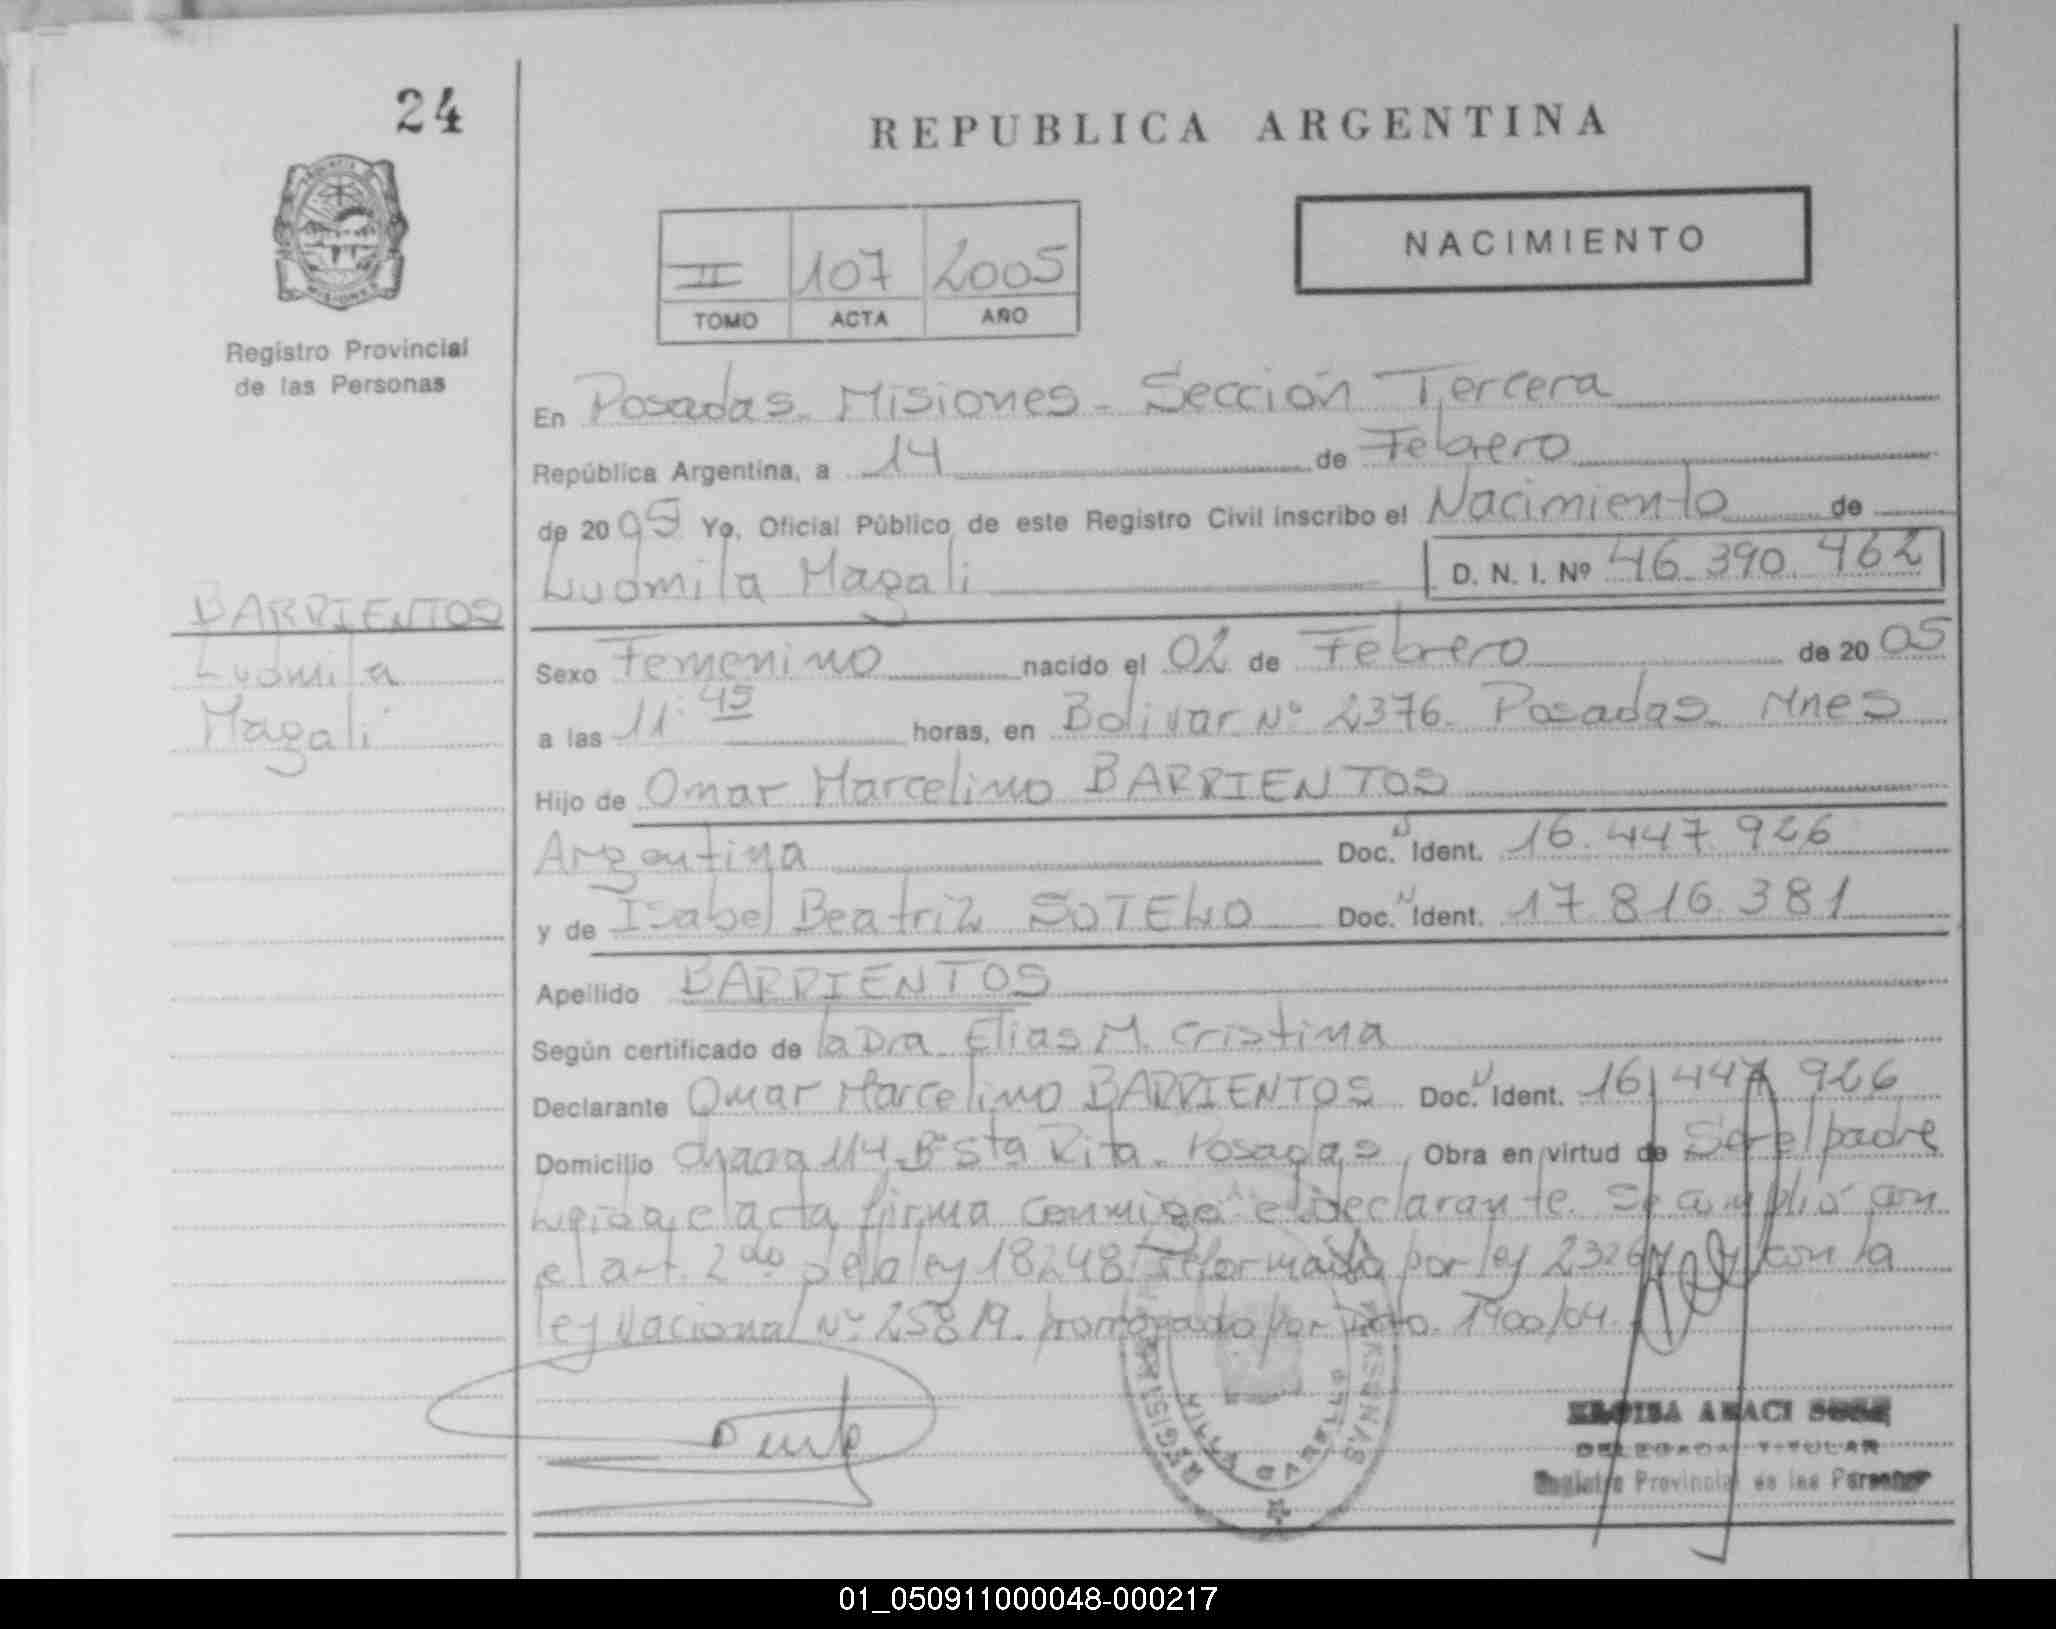 24
REPUBLICA ARGENTINA
NACIMIENTO
II 107 2005
TOMO ACTA AÑO
Registro Provincial
de las Personas
En Posadas. Misiones - Sección Tercera
República Argentina, a 14 de Febrero
de 2005 Yo, Oficial Público de este Registro Civil inscribo el Nacimiento de
Ludmila Magali D. N. I. Nº 46.390.462
BARRIENTOS
Ludmila
Magali
Sexo Femenino nacido el 02 de Febrero de 2005
a las 11:45 horas, en Bolivar Nº 2376. Posadas Mnes
Hijo de Omar Marcelino BARRIENTOS
Argentina Doc. N Ident. 16.447.926
y de Isabel Beatriz SOTELO Doc. N Ident. 17.816.381
Apellido BARRIENTOS
Según certificado de la Dra Elias M. Cristina
Declarante Omar Marcelino BARRIENTOS Doc. N Ident. 16.447.926
Domicilio Chacra 114 Bº Sta Rita - Posadas Obra en virtud de Ser el padre
Leida el acta firma conmigo el declarante. Se cumplió con
el art. 2do de la ley 18248 reformada por ley 23264 y con la
ley Nacional Nº 25819. prorrogado por Dcto. 1900/04.
REGISTR
VILLA
CABELLO
DELEGADA TITULAR
Registro Provincial de las Personas
01_050911000048-000217